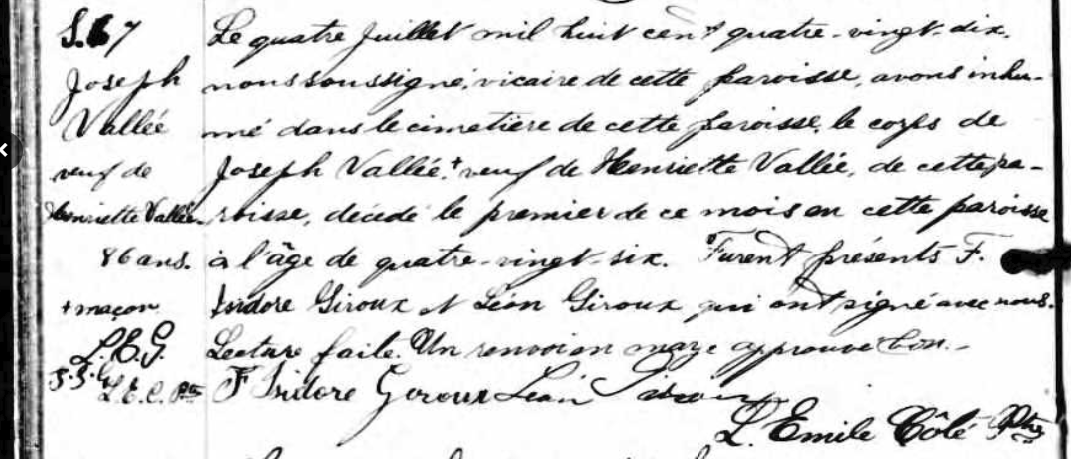 S. 67
Joseph
Vallée
veuf de
Henriette Vallée
86 ans.
+ maçon
L. E. G.
F. I. G.
L. E. C. Ptre
Le quatre Juillet mil huit cent quatre-vingt-dix,
nous soussigné, vicaire de cette paroisse, avons inhu-
mé dans le cimetière de cette paroisse, le corps de
Joseph Vallée,+ veuf de Henriette Vallée, de cette pa-
roisse, décédé le premier de ce mois en cette paroisse
à l'âge de quatre-vingt-six. Furent présents F.
Isidore Giroux et Léon Giroux qui ont signé avec nous.
Lecture faite. Un renvoi en marge approuvé bon.-
F Isidore Giroux Léon Giroux
L. Emile Côté Ptre